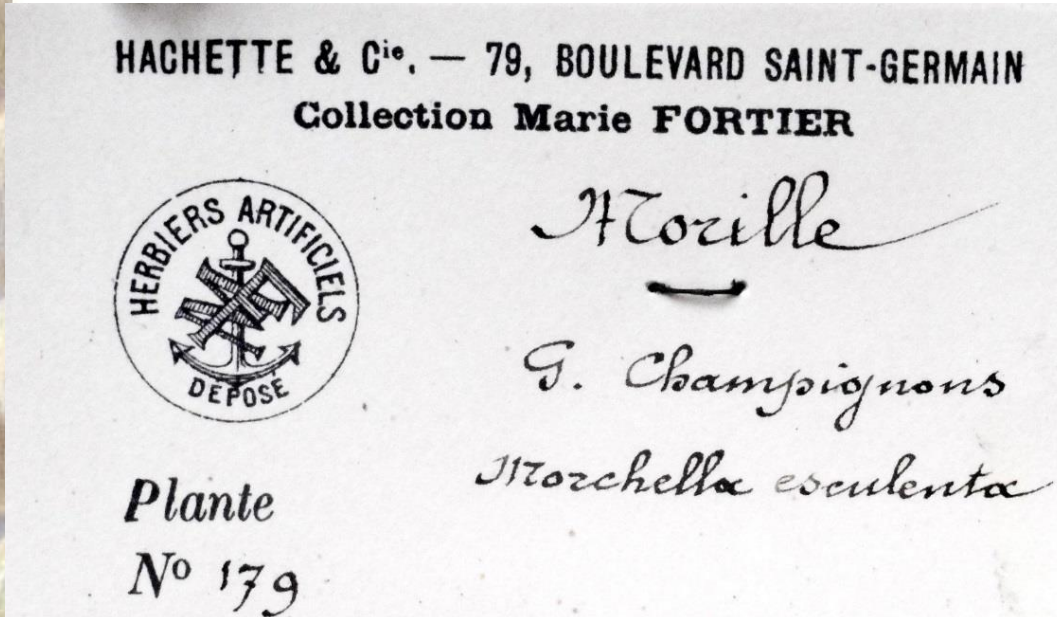 HACHETTE & Cie. — 79, BOULEVARD SAINT-GERMAIN
Collection Marie FORTIER
HERBIERS ARTIFICIELS
DÉPOSÉ
Morille
G. Champignons
Morchella esculenta
Plante
No 179